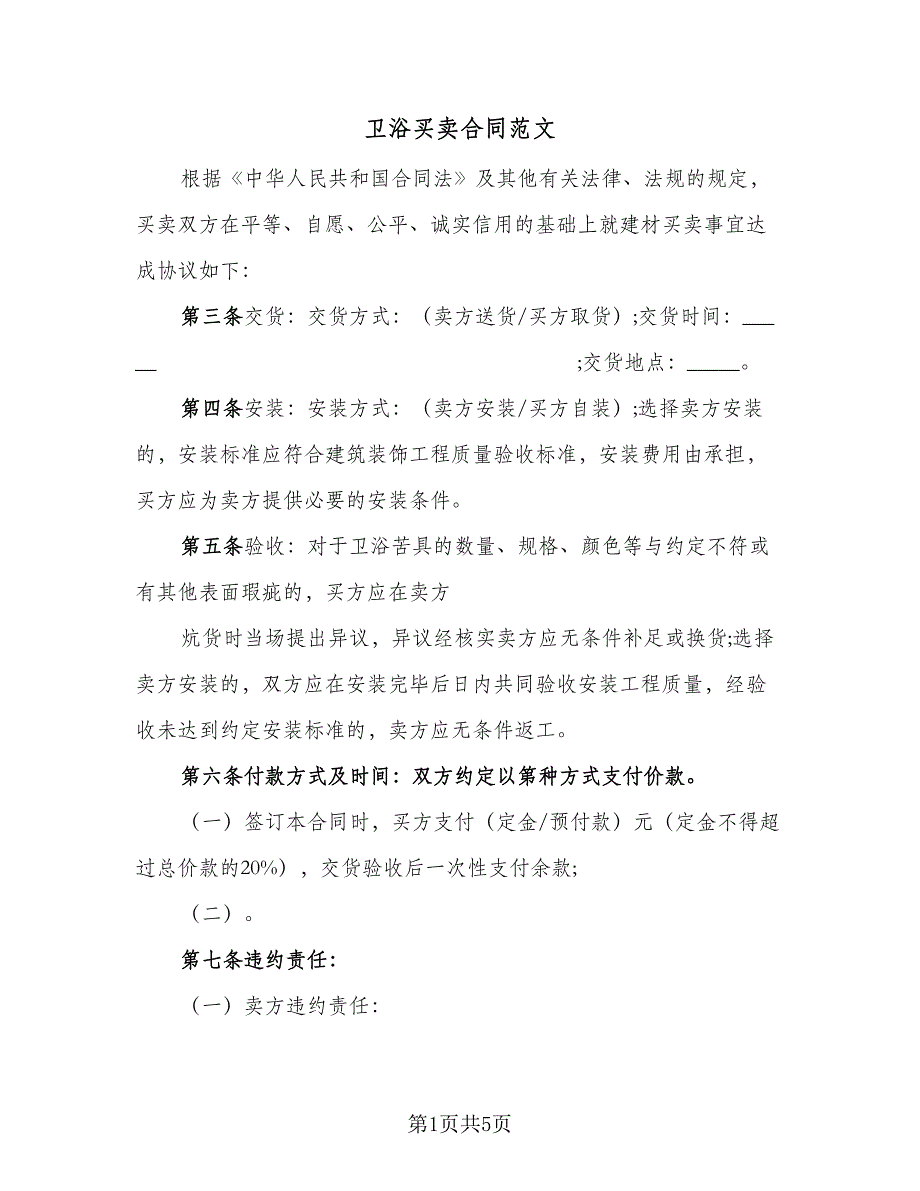 卫浴买卖合同范文
根据《中华人民共和国合同法》及其他有关法律、法规的规定，
买卖双方在平等、自愿、公平、诚实信用的基础上就建材买卖事宜达
成协议如下：
第三条交货：交货方式：（卖方送货/买方取货）;交货时间：___
__ ;交货地点：_____。
第四条安装：安装方式：（卖方安装/买方自装）;选择卖方安装
的，安装标准应符合建筑装饰工程质量验收标准，安装费用由承担，
买方应为卖方提供必要的安装条件。
第五条验收：对于卫浴苦具的数量、规格、颜色等与约定不符或
有其他表面瑕疵的，买方应在卖方
炕货时当场提出异议，异议经核实卖方应无条件补足或换货;选择
卖方安装的，双方应在安装完毕后日内共同验收安装工程质量，经验
收未达到约定安装标准的，卖方应无条件返工。
第六条付款方式及时间：双方约定以第种方式支付价款。
（一）签订本合同时，买方支付（定金/预付款）元（定金不得超
过总价款的20%），交货验收后一次性支付余款;
（二）。
第七条违约责任：
（一）卖方违约责任：
第1页共5页